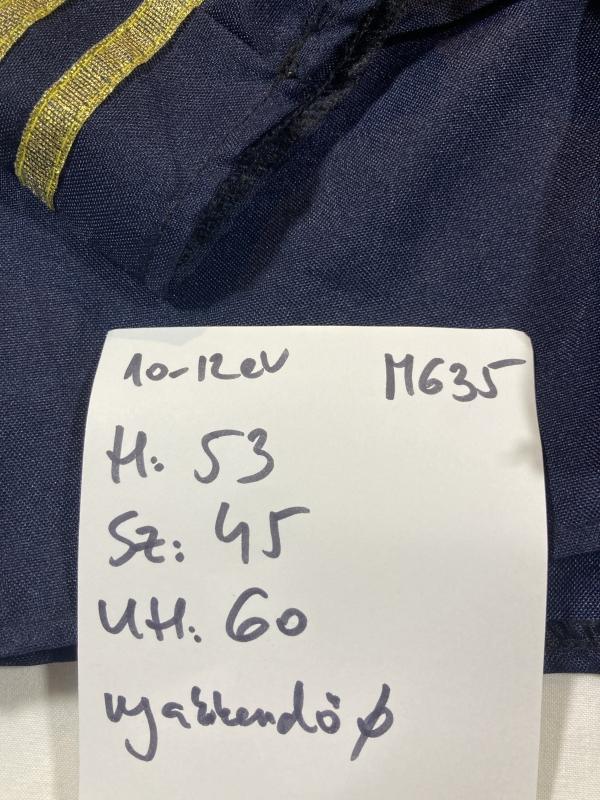 10-12 év M635
H: 53
Sz: 45
UH: 60
nyakkendő ø